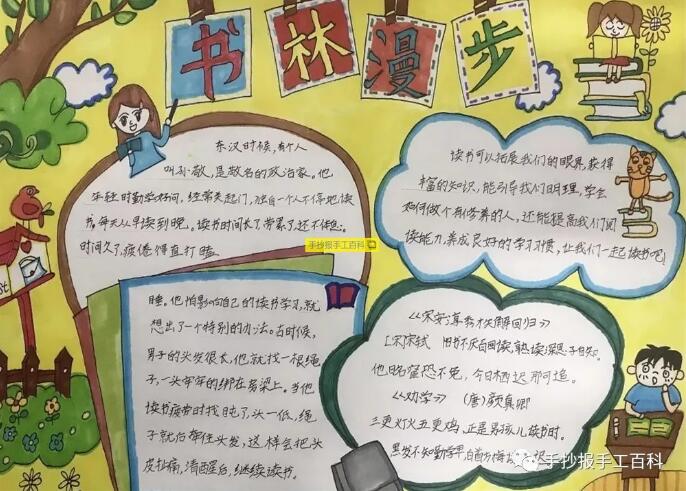 书林漫步
东汉时候,有个人
叫孙敬,是著名的政治家。他
年轻时勤学好问,经常关起门,独自一个人不停地读
书。每天从早读到晚。读书时间长了,常累了,还不休息。
时间久了,疲倦得直打瞌
睡。他怕影响自己的读书学习,就
想出了一个特别的办法。古时候,
男子的头发很长,他就找一根绳
子,一头牢牢的绑在房梁上。当他
读书疲劳时打盹了,头一低,绳
子就后牵住头发,这样会把头
皮扯痛,清醒后,继续读书。
读书可以拓展我们的眼界,获得
丰富的知识,能引导我们明理,学会
如何做个有修养的人,还能提高我们阅
读能力,养成良好的学习习惯,让我们一起读书吧
《送安惇秀才失解西归》
[宋]宋轼 旧书不厌百回读,熟读深思子自知。
他 名宦恐不免,今日栖迟那可追。
《劝学》 (唐)颜真卿
三更灯火五更鸡,正是男孩儿读书时。
黑发不知勤学早,白首方悔读书迟
手抄报手工百科
手抄报手工百科
st